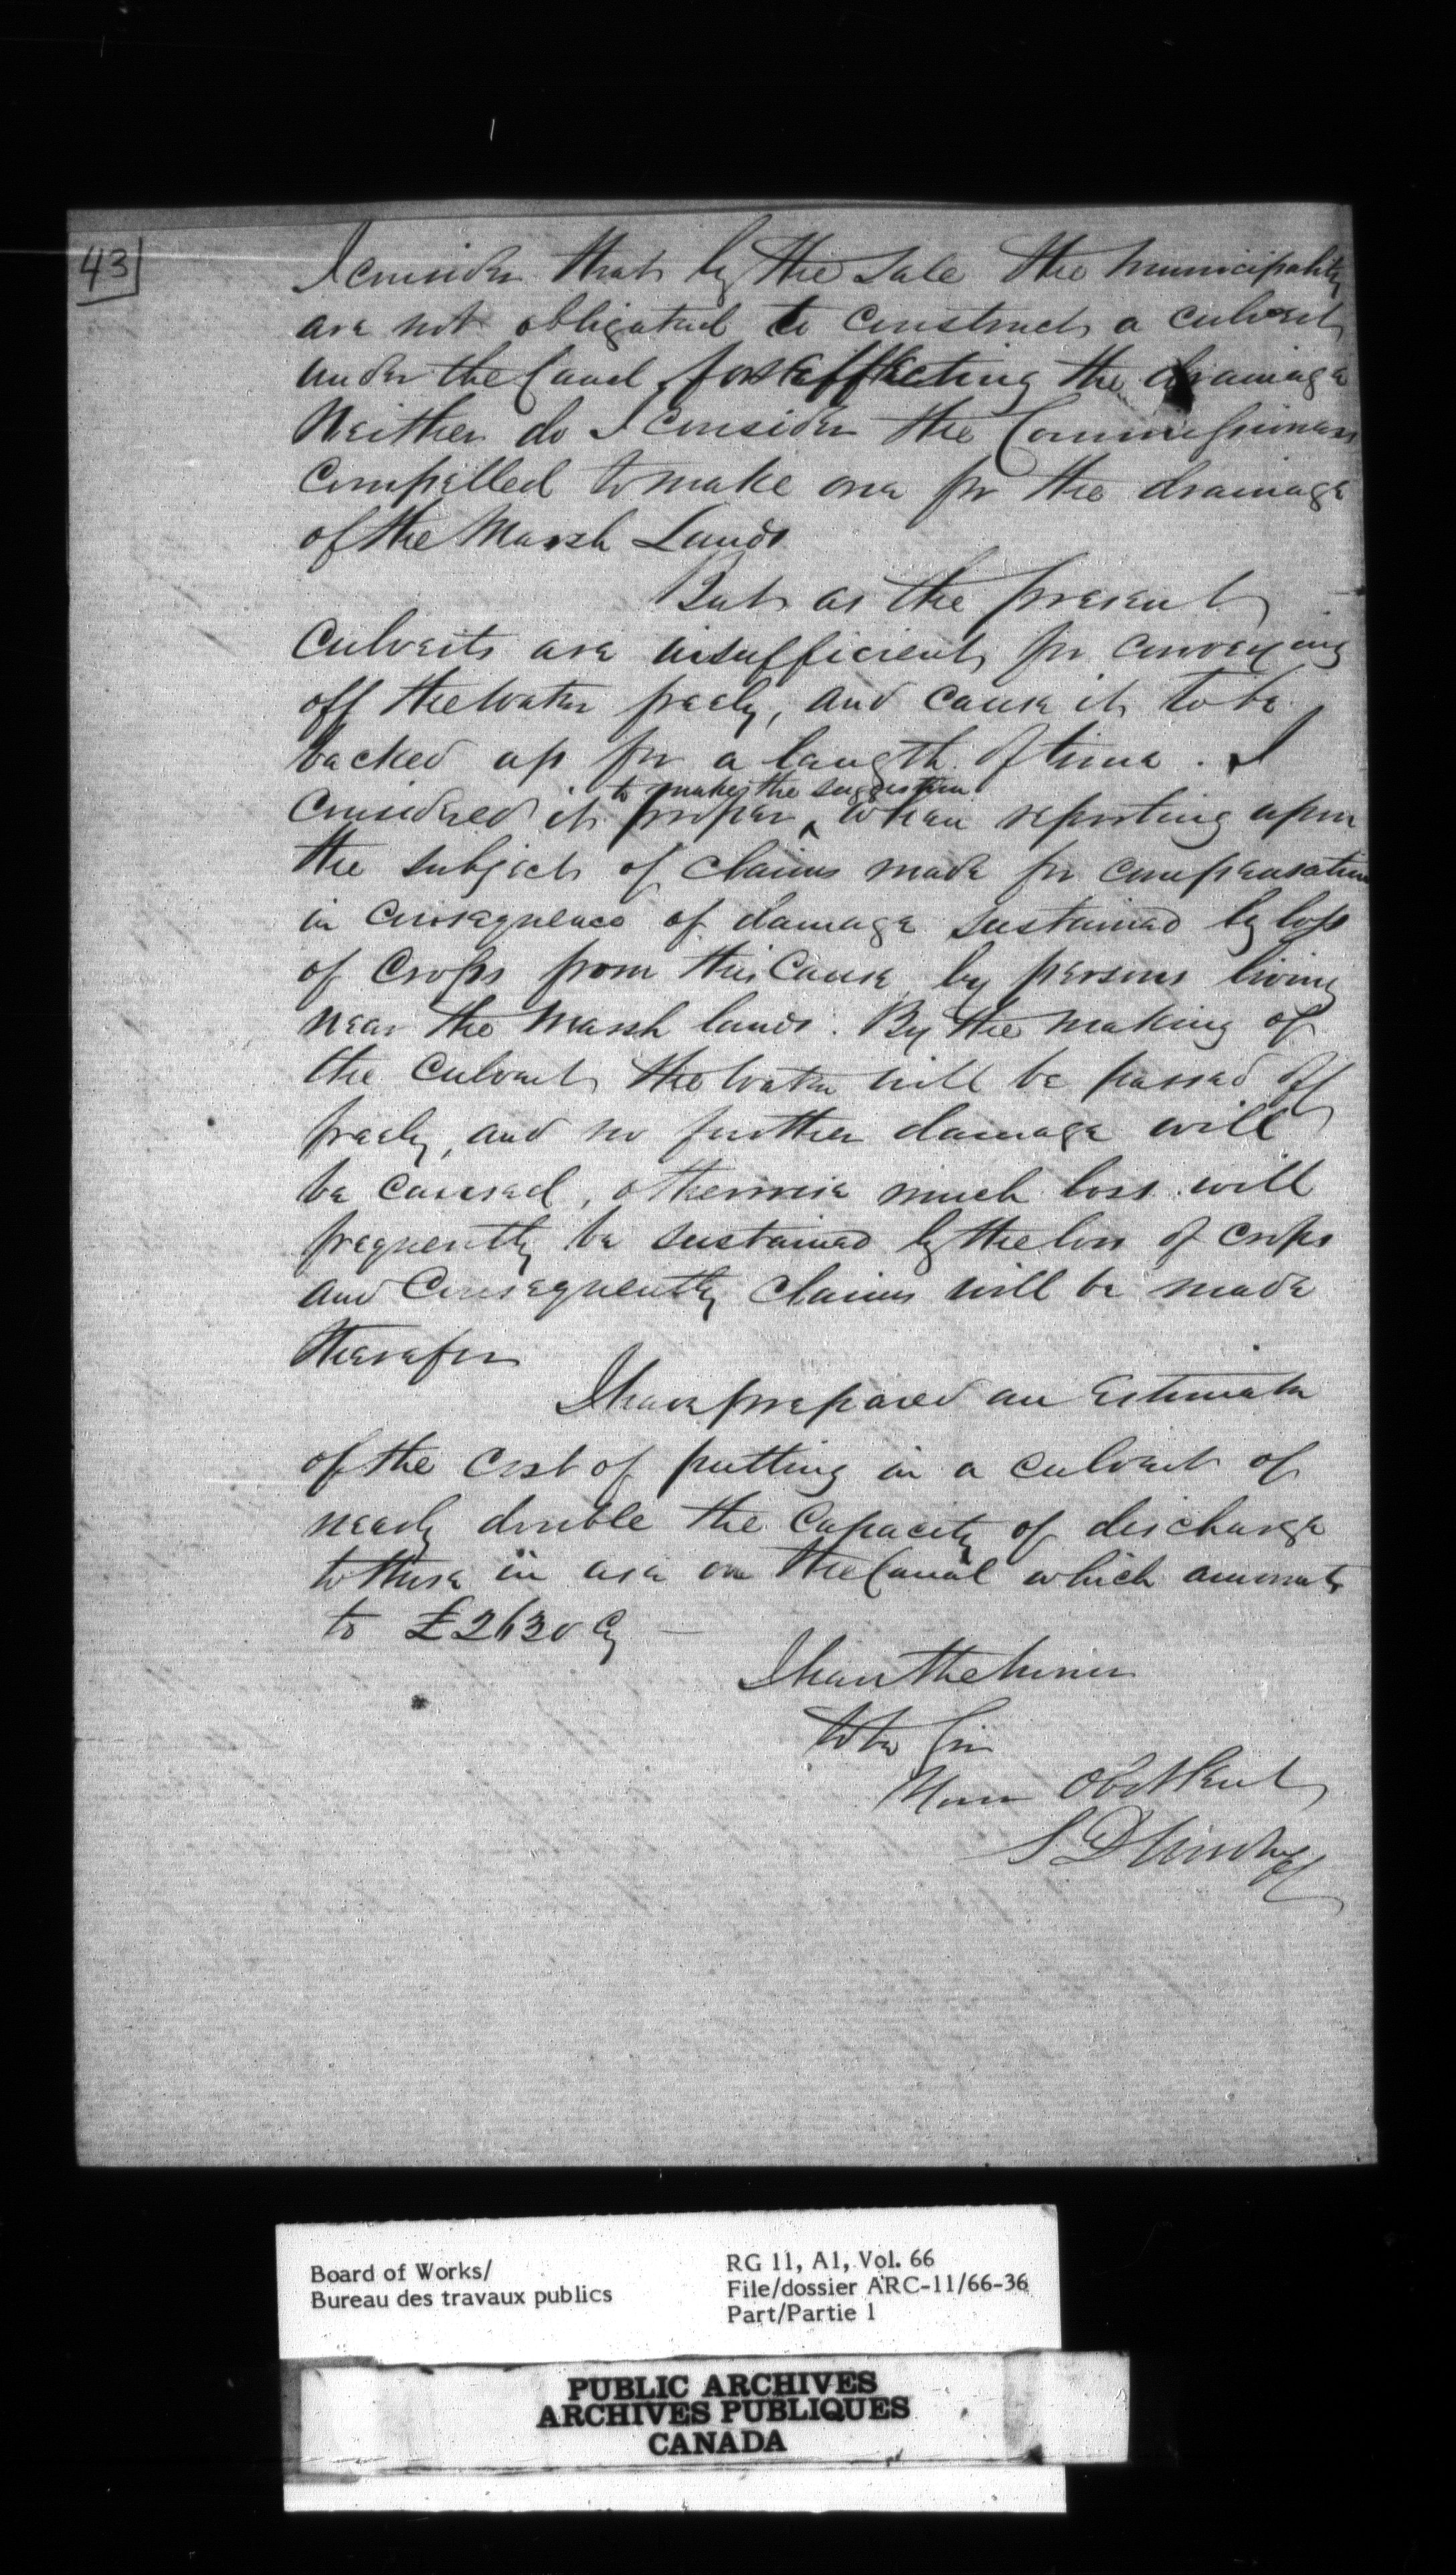 43
I consider that by the Sale the Municipality
are not obligated to construct a culvert
under the Canal for effecting the drainage
Neither do I consider the Commissioners
compelled to make one for the drainage
of the Marsh Lands
But as the present
Culverts are insufficient for conveying
off the Water freely, and cause it to be
backed up for a length of time. I
to make the suggestion
considered it proper ‸ when reporting upon
the subject of claims made for compensation
in consequence of damage sustained by loss
of Crops from this Cause by persons living
near the Marsh lands. By the making of
the Culvert the Water will be passed off
freely, and no further damage will
be caused, otherwise much loss will
frequently be sustained by the loss of crops
and Consequently claims will be made
therefor
I have prepared an Estimate
of the cost of putting in a culvert of
nearly double the Capacity of discharge
to those in use on the Canal which amounts
to £2630 Cy —
I have the honor
to be Sir
Your Obt Servt
S. D. Woodruff
Board of Works/
Bureau des travaux publics
RG 11, A1, Vol. 66
File/dossier ARC-11/66-36
Part/Partie 1
PUBLIC ARCHIVES
ARCHIVES PUBLIQUES
CANADA